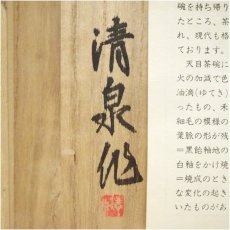 清泉作
碗を持ち帰り
たところ、茶
れ、現代も格
ております。
天目茶碗に
火の加減で色
油滴(ゆてき)
ったもの、禾
細毛の模様の
葉脈の形が残
＝黒飴釉地の
白釉をかけ焼
＝焼成のとき
な変化の起き
いたものがあ